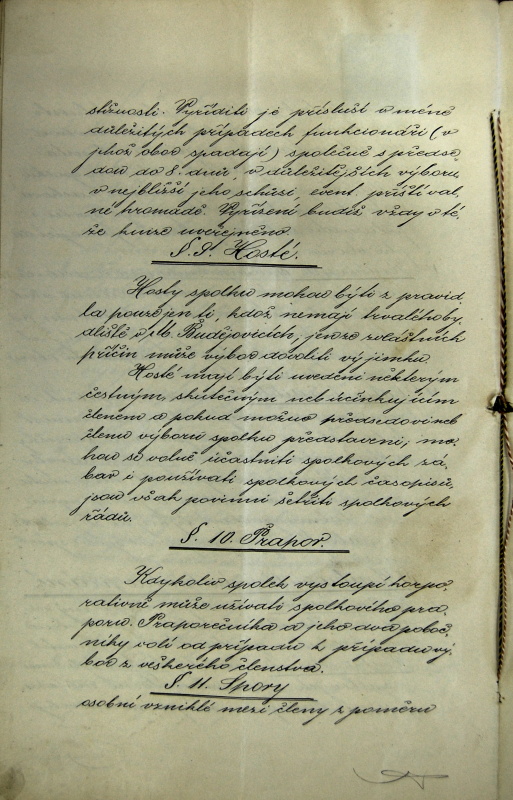 stížnosti. Vyříditi je přísluší v méně
důležitých případech funkcionáři (v
jehož obor spadají) společně s předse-
dou do 8. dnů, v důležitějších výboru
v nejbližší jeho schůzi, event. příští val-
né hromadě. Vyřízení budiž vždy v té-
že knize uveřejněno.
§. 9. Hosté.
Hosty spolku mohou býti z pravid-
la pouze jen ti, kdož nemají trvalého by-
dliště v Budějovicích, jen ze zvláštních
příčin může výbor dovoliti výjimku.
Hosté mají býti uvedeni některým
čestným, skutečným neb účinkujícím
členem a pokud možno předsedovi neb
členu výboru spolku představeni; mo-
hou se volně účastniti spolkových zá-
bav i používati spolkových časopisů,
jsou však povinni šetřiti spolkových
řádů.
§. 10. Prapor.
Kdykoliv spolek vystoupí korpo-
rativně může užívati spolkového pra-
poru. Praporečníka a jeho dva poboč-
níky volí od případu k případu vý-
bor z veškerého členstva.
§. 11. Spory
osobní vzniklé mezi členy z poměru